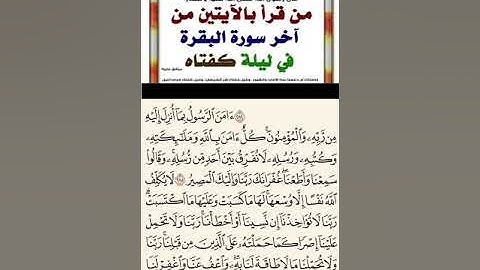 من قرأ بالآيتين من
آخر سورة البقرة
في ليلة كفتاه
ءَامَنَ ٱلرَّسُولُ بِمَآ أُنزِلَ إِلَيْهِ
مِن رَّبِّهِۦ وَٱلْمُؤْمِنُونَۚ كُلٌّ ءَامَنَ بِٱللَّهِ وَمَلَٰٓئِكَتِهِۦ
وَكُتُبِهِۦ وَرُسُلِهِۦ لَا نُفَرِّقُ بَيْنَ أَحَدٍ مِّن رُّسُلِهِۦۚ وَقَالُوا۟
سَمِعْنَا وَأَطَعْنَاۖ غُفْرَانَكَ رَبَّنَا وَإِلَيْكَ ٱلْمَصِيرُ ۝ لَا يُكَلِّفُ
ٱللَّهُ نَفْسًا إِلَّا وُسْعَهَاۚ لَهَا مَا كَسَبَتْ وَعَلَيْهَا مَا ٱكْتَسَبَتْۗ
رَبَّنَا لَا تُؤَاخِذْنَآ إِن نَّسِينَآ أَوْ أَخْطَأْنَاۚ رَبَّنَا وَلَا تَحْمِلْ
عَلَيْنَآ إِصْرًا كَمَا حَمَلْتَهُۥ عَلَى ٱلَّذِينَ مِن قَبْلِنَاۚ رَبَّنَا
وَلَا تُحَمِّلْنَا مَا لَا طَاقَةَ لَنَا بِهِۦۖ وَٱعْفُ عَنَّا وَٱغْفِرْ لَنَا